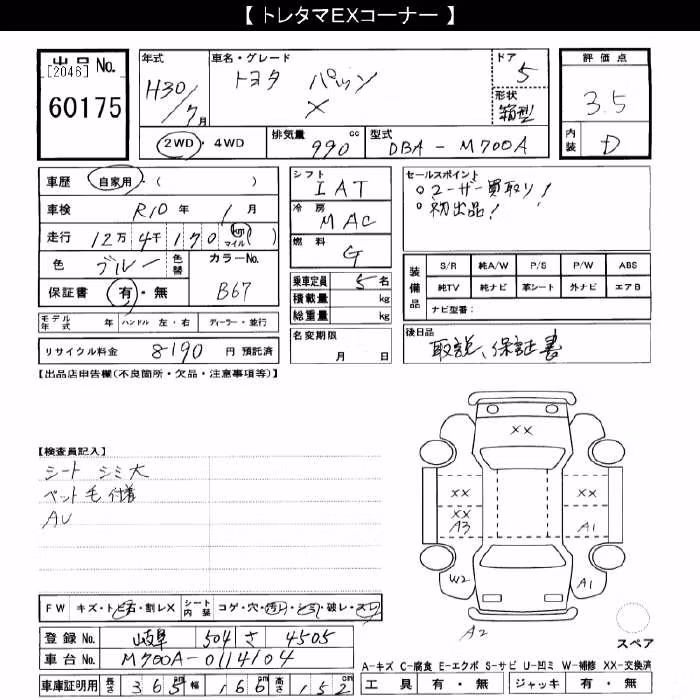 【 トレタマEXコーナー 】
出品 No.
[2046]
60175
年式 H30/7月
車名・グレード トヨタ パッソ X
ドア 5
形状 箱型
評価点 3.5
内装 D
2WD・4WD
排気量 990 cc
型式 DBA-M700A
車歴 自家用・( )
車検 R10年 1月
走行 12万4千170 km マイル ( )
色 ブルー 色替
カラーNo. B67
保証書 有・無
モデル年式 年 ハンドル 左・右 ディーラー・並行
リサイクル料金 8190 円 預託済
シフト IAT
冷房 MAC
燃料 G
乗車定員 5名
積載量 kg
総重量 kg
名変期限 月 日
セールスポイント
○ユーザー買取り!
○初出品!
装備品
S/R 純A/W P/S P/W ABS
純TV 純ナビ 革シート 外ナビ エアB
ナビ型番:
後日品
取説、保証書
【出品店申告欄(不良箇所・欠品・注意事項等)】
【検査員記入】
シート シミ大
ペット毛付着
AU
XX
XX XX
XX
A3 A1
W2 A1
A2
スペア
FW キズ・トビ石・割レX シート内装 コゲ・穴・汚り・シミ・破レ・スレ
登録 No. 岐阜 504 さ 4505
車台 No. M700A-0114104
車庫証明用 長さ 365cm 幅 166cm 高さ 152
A-キズ C-腐食 E-エクボ S-サビ U-凹ミ W-補修 XX-交換済
工具 有・無 ジャッキ 有・無